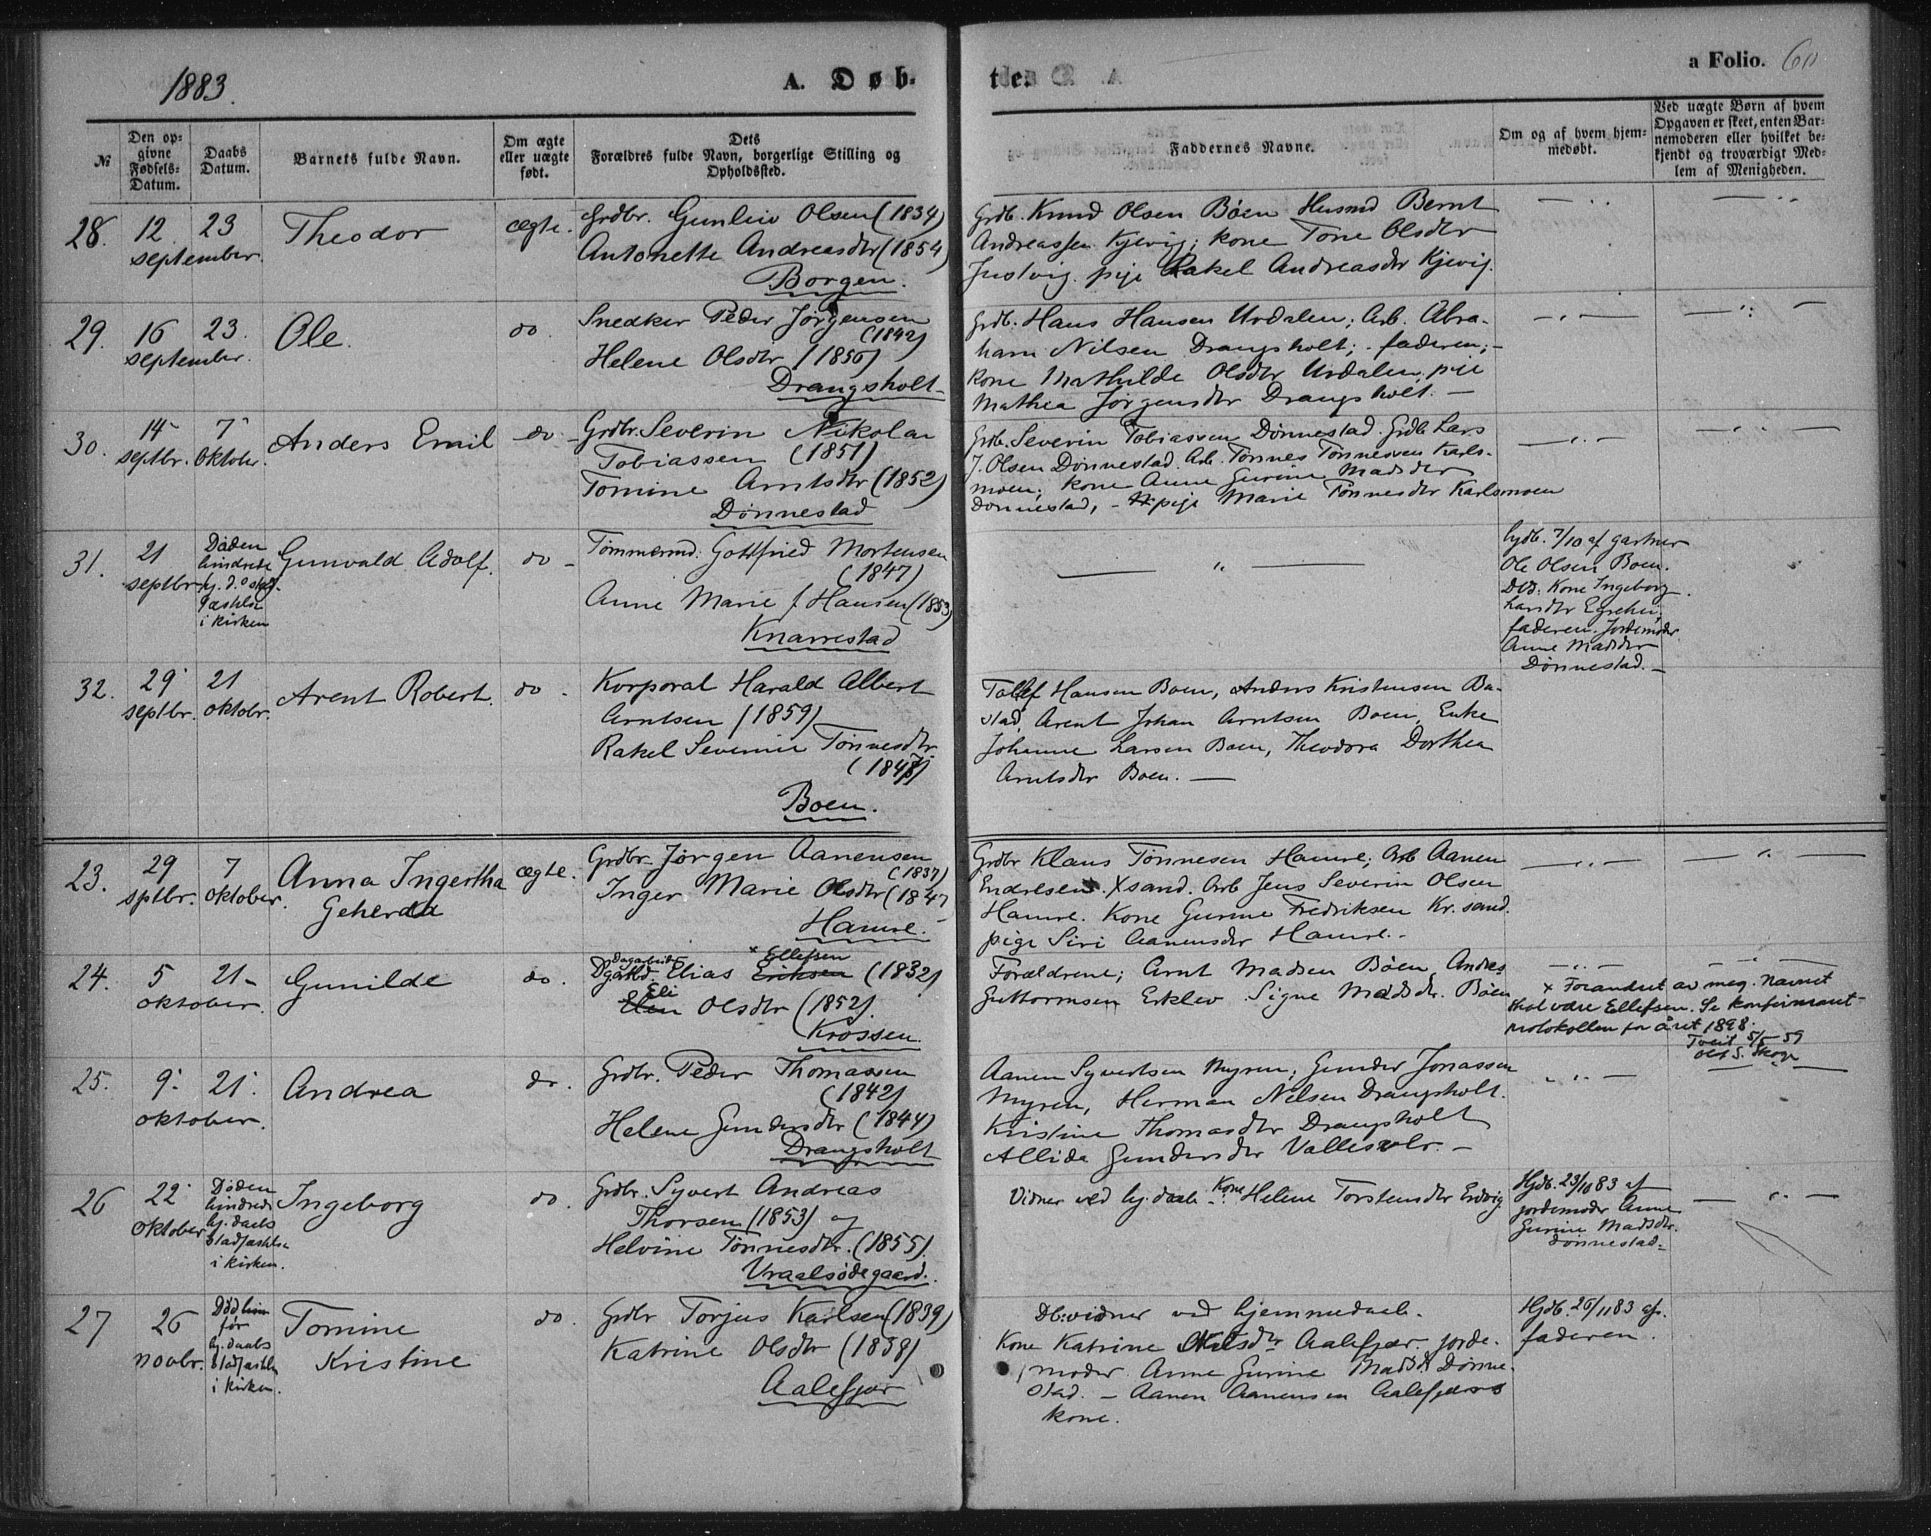 1883.
A. Døb-
te.
a Folio. 60
№
Den op-
givne
Fødsels-
Datum.
Daabs
Datum.
Barnets fulde Navn.
Om ægte
eller uægte
født.
Dets
Forældres fulde Navn, borgerlige Stilling og
Opholdssted.
Faddernes Navne.
Om og af hvem hjem-
medøbt.
Ved uægte Børn af hvem
Opgaven er skeet, enten Bar-
nemoderen eller hvilket be-
kjendt og troværdigt Med-
lem af Menigheden.
28. 12 23
september.
Theodor
ægte.
Grdbr. Gunleiv Olsen (1834)
Antonette Andreasdtr (1854)
Borgen.
Grdb. Knud Olsen Böen Husmd Bernt
Andreassen Kjevig; kone Tone Olsdtr
Justvig. pige Rakel Andreasdtr Kjevig.
29. 16 23.
september.
Ole.
do.
Snedker Peder Jörgensen
(1842)
Helene Olsdtr (1850)
Drangsholt
Grdb. Hans Hansen Urdalen; Arb. Abra-
ham Nilsen Drangsholt; faderen;
kone Mathilde Olsdtr Urdalen, pige
Mathea Jörgensdtr Drangsholt. -
30. 14 7
septbr. Oktobr.
Anders Emil
do -
Grdbr. Severin Nikolai
Tobiassen (1851)
Tomine Arntsdtr (1852)
Dönnestad
Grdb. Severin Tobiassen Dönnestad. Grdb Lars
J. Olsen Dönnestad. Arb. Tönnes Tönnesen Karls-
moen; kone Anne Gurine Madsdtr
Dönnestad, - pige Marie Tönnesdtr Karlsmoen
31. 21
septbr.
Døden
hindrede
i kirken
Gunvald Adolf.
do -
Tömmermd. Gottfried Mortensen
(1847)
Anne Marie f. Hansen (1853)
Knarrestad
hjdb. 7/10 af gartner
Ole Olsen Boen.
Kone Ingeborg
Larsdtr
faderen. Jordemoder
Anne Madsdtr
Dönnestad. -
32. 29 21
septbr. oktobr.
Arent Robert.
do -
Korporal Harald Albert
Arntsen (1859)
Rakel Severine Tönnesdtr
Boen.
Tallef Hansen Boen, Anders Kristensen Ba-
stad, Arent Johan Arntsen Boen, Enke
Johanne Larsen Boen, Theodora Dorthea
Arntsdtr Boen. -
23. 29 7
sptbr. oktober.
Anna Ingertha
ægte.
Grdbr. Jörgen Aanensen
(1837)
Inger Marie Olsdtr (1847
Hamre.
Grdbr Klaus Tönnesen Hamre; Arb Aanen
Endresen Xsand. Arb Jens Severin Olsen
Hamre. Kone Gurine Fredriksen Kr.sand.
pige Siri Aanensdtr Hamre. -
24. 5 21 -
oktober.
Gunilde
do.
Dagarbeider x Ellefsen
Elias Eriksen (1832)
Eli
Elen Olsdtr (1852).
Krossen.
Forældrene; Arnt Madsen Böen Andres
Guttormsen Erklev Signe Madsdtr. Böen
x Forandret av meg. Navnet
skal være Ellefsen. Se konfirmant-
protokollen for året 1898.
Tveit 5/5 59
Olaf S. Skoge
25. 9 21.
oktober.
Andrea
do.
Grdbr. Peder Thomassen
(1842)
Helene Gundersdtr (1844)
Drangsholt
Aanen Syvertsen Myren; Gunder Jonassen
Myren, Herman Nilsen Drangsholt.
Kristine Thomasdtr Drangsholt
Allida Gundersdtr -
26 22
oktober
Døden
hindrede
hj.daabs
Stadfæstelse
i kirken.
Ingeborg
do.
Grdbr. Syvert Andreas
Thorsen (1853) og
Helvine Tönnesdtr. (1855).
Vraalsödegaard.
Vidner ved hj.daab - Kone Helene Torstensdtr
Hjdb. 23/10 83 af
jordemoder Anne
Gurine Madsdtr.
Dönnestad. -
27 26
novbr.
før
hj.daabs
Stadfæstelse
i kirken.
Tomine
Kristine
do.
Grdbr Torjus Karlsen (1839)
Katrine Olsdtr (1838)
Aalefjær
Db:vidner ved hjemmedaab.
Kone Katrine Aalefjær. jorde-
moder Anne Gurine Madsd. Dönne-
stad. - Aanen Aanensen Aalefjærs
kone.
Hjdb. 26/11 83 af
faderen.